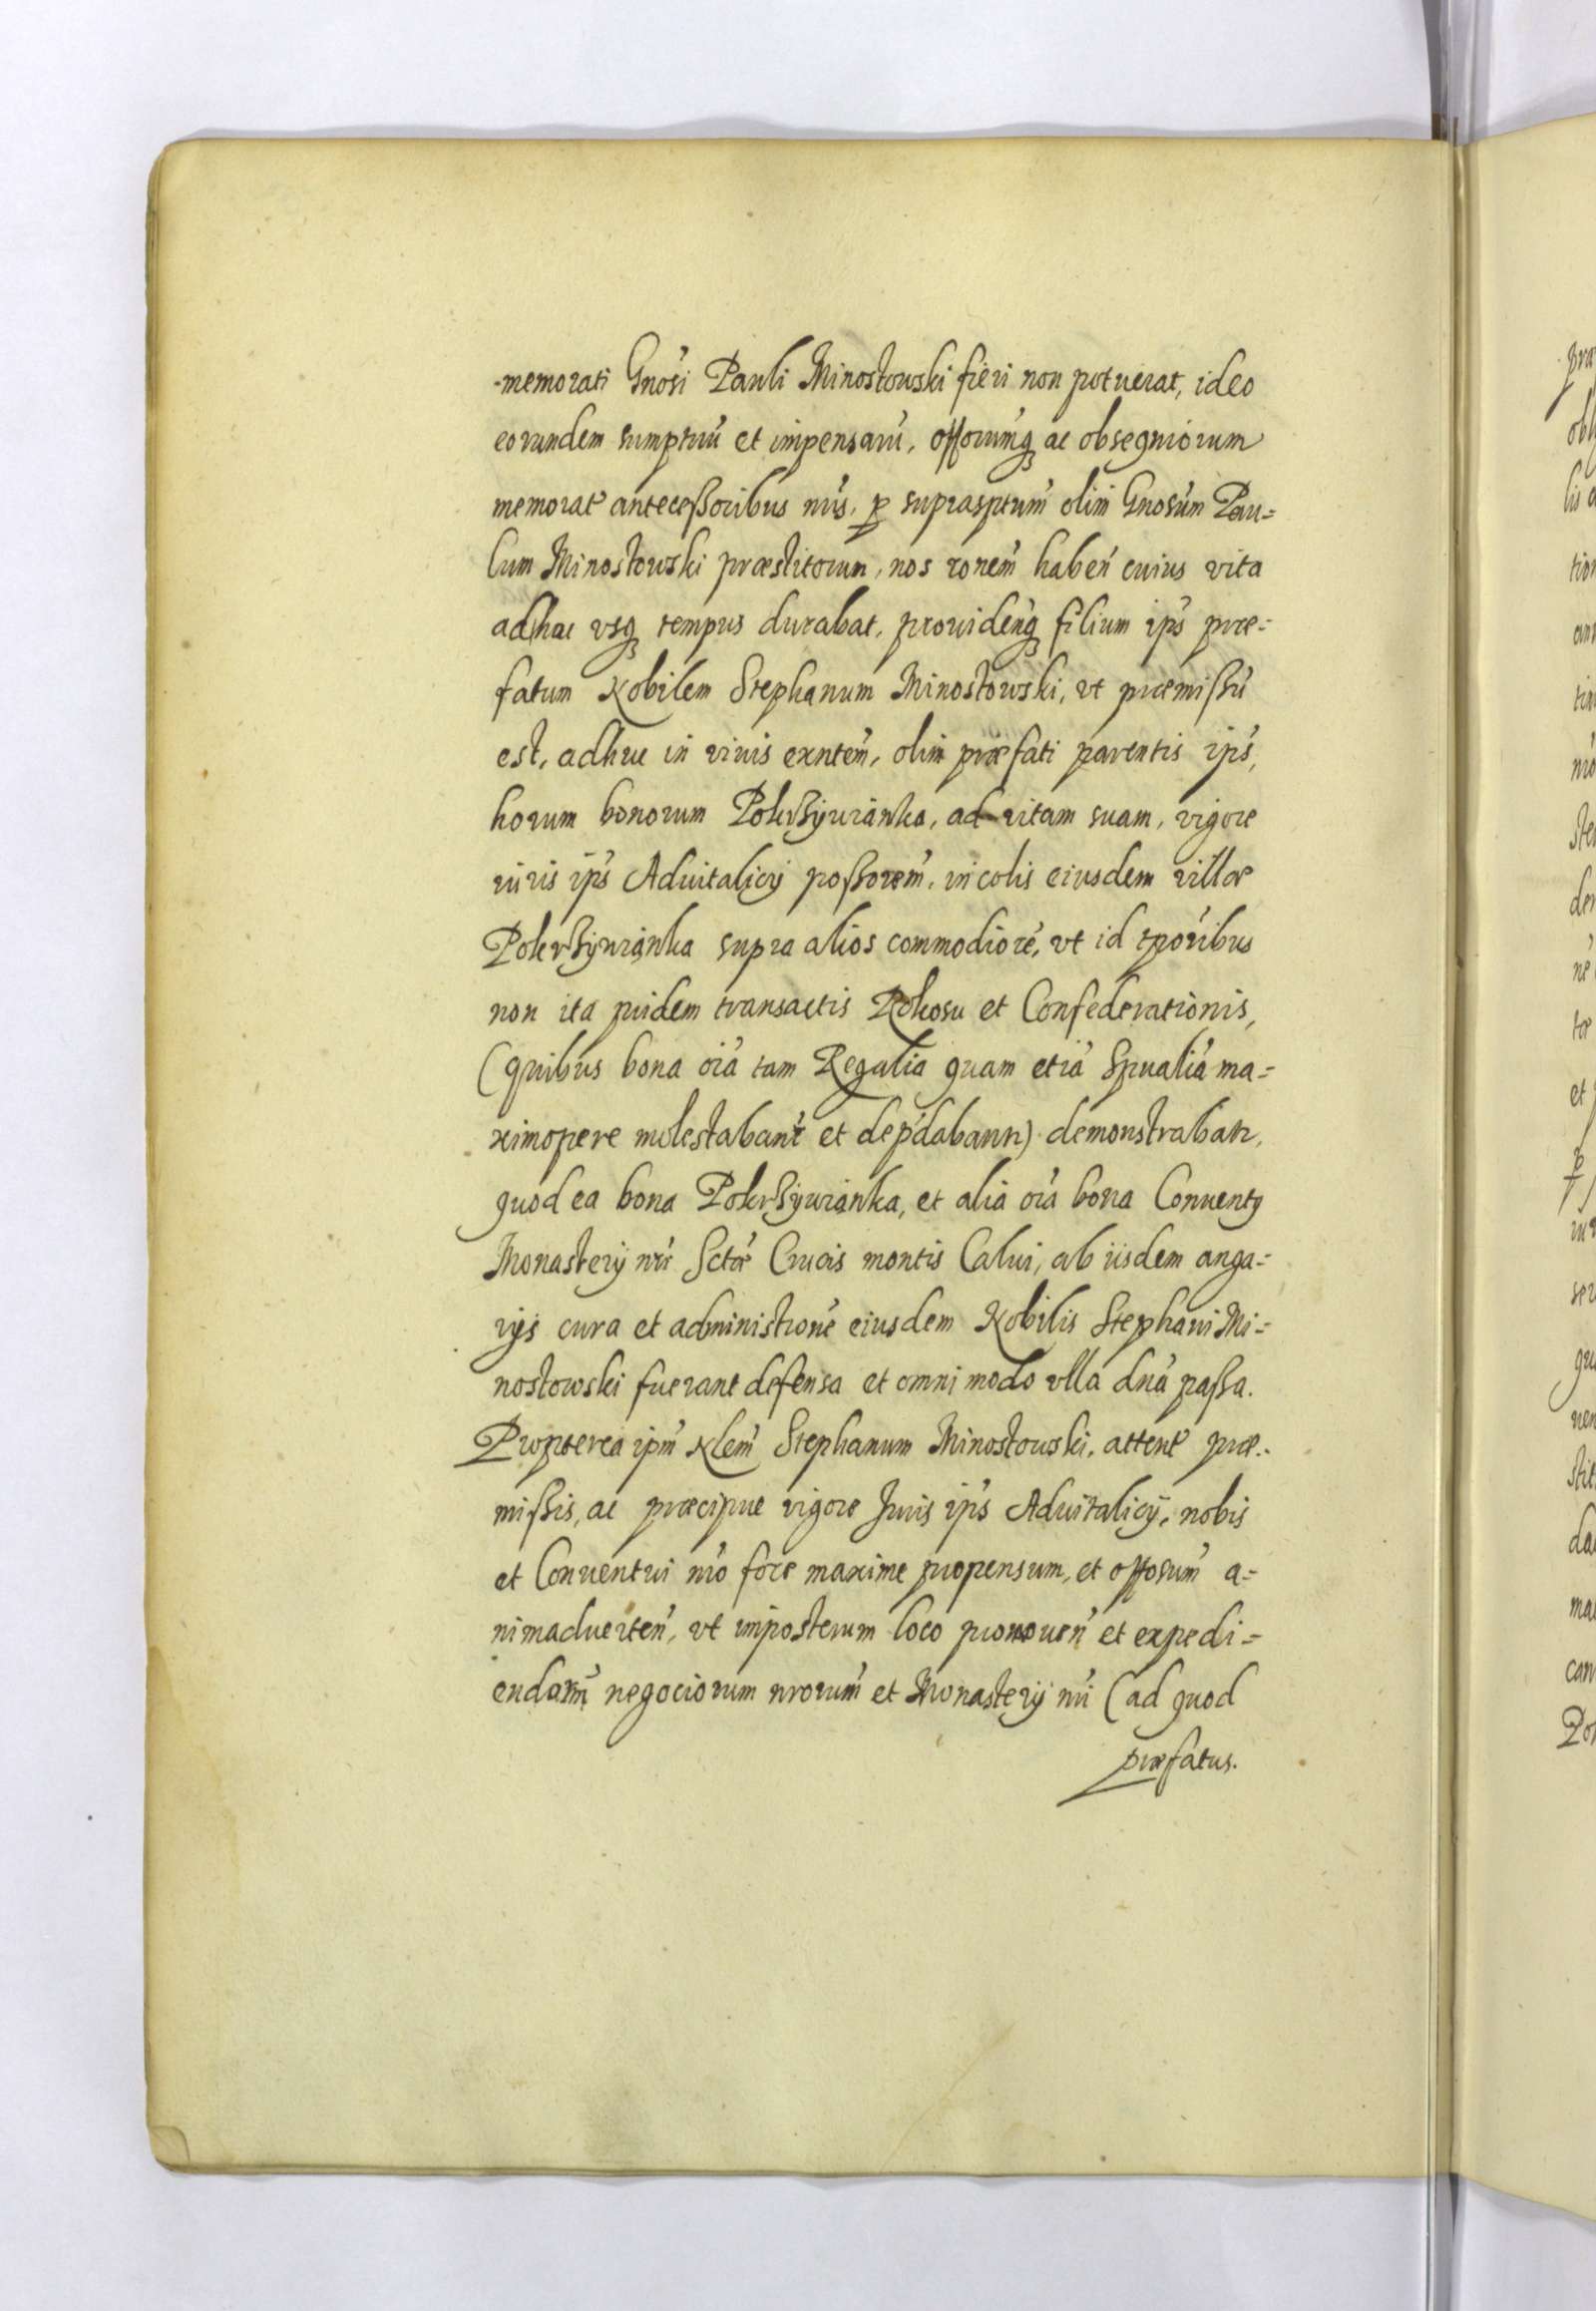 -memorati Gnosi Pauli Minostowski fieri non potuerat, ideo
eorundem sumptuu et impensaru, offorumq ac obsequiorum
memorat antecessoribus nris, p suprasptum olim Gnosum Pau=
lum Minostowski præstitorum, nos ronem haben cuius vita
adhac vsq tempus durabat, prouidenq filium ips præ=
fatum Nobilem Stephanum Minostowski, vt præmissu
est, adhuc in viuis exntem, olim præfati parentis ips,
horum bonorum Pokrzÿwianka, ad vitam suam, vigore
iuris ips Aduitalicÿ possorem, incolis eiusdem villæ
Pokrzÿwianka supra alios commodiore, vt id tporibus
non ita pridem transactis Rokosu et Confederationis,
(quibus bona oia tam Regalia quam etia Spualia ma=
ximopere molestabant et depdabant) demonstrabat,
quod ea bona Pokrzÿwianka, et alia oia bona Conuentq
Monasterÿ nri Sctæ Crucis montis Calui, ab iisdem anga=
rÿs cura et administione eiusdem Nobilis Stephani Mi=
nostowski fuerant defensa et omni modo vlla dna passa.
Propterea ipm Nlem Stephanum Minostowski, attent præ=
missis, ac præcipue vigore Juris ips Aduitalicÿ, nobis
et Conuentui nro fore maxime propensum, et offosum a=
nimaduerten, vt imposterum loco promouen et expedi=
endorum negociorum nrorum et Monasterÿ nri (ad quod
præfatus.